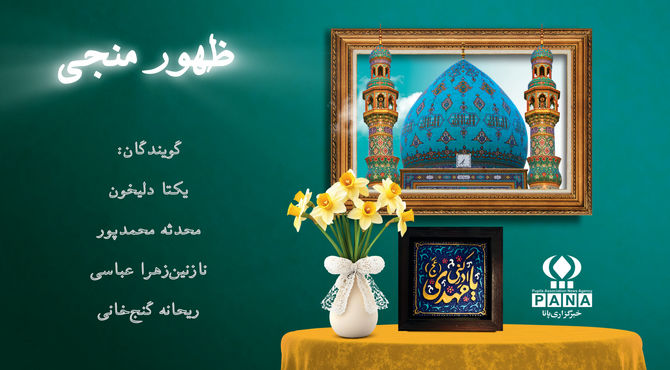 ظهور منجی
گویندگان:
یکتا دلیخون
محدثه محمدپور
نازنین‌زهرا عباسی
ریحانه گنج‌خانی
یا مهدی ادرکنی
Pupils Association News Agency
PANA
خبرگزاری پانا